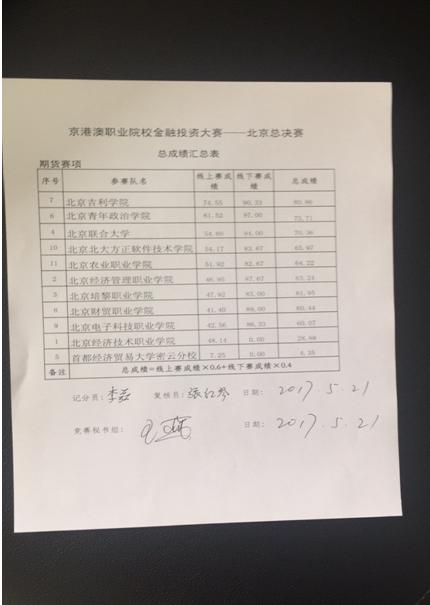 京港澳职业院校金融投资大赛——北京总决赛
总成绩汇总表
期货赛项
序号 参赛队名 线上赛成绩 线下赛成绩 总成绩
7 北京吉利学院 74.55 90.33 80.86
6 北京青年政治学院 61.52 97.00 75.71
4 北京联合大学 54.60 94.00 70.36
10 北京北大方正软件技术学院 54.17 83.67 65.97
11 北京农业职业学院 51.92 82.67 64.22
2 北京经济管理职业学院 46.95 87.67 63.24
3 北京培黎职业学院 47.92 83.00 61.95
8 北京财贸职业学院 41.40 89.00 60.44
9 北京电子科技职业学院 42.56 86.33 60.07
1 北京经济技术职业学院 48.14 0.00 28.88
5 首都经济贸易大学密云分校 7.25 0.00 4.35
备注 总成绩=线上赛成绩×0.6+线下赛成绩×0.4
记分员: 复核员: 张红琴 日期: 2017.5.21
竞赛秘书组: 日期: 2017.5.21